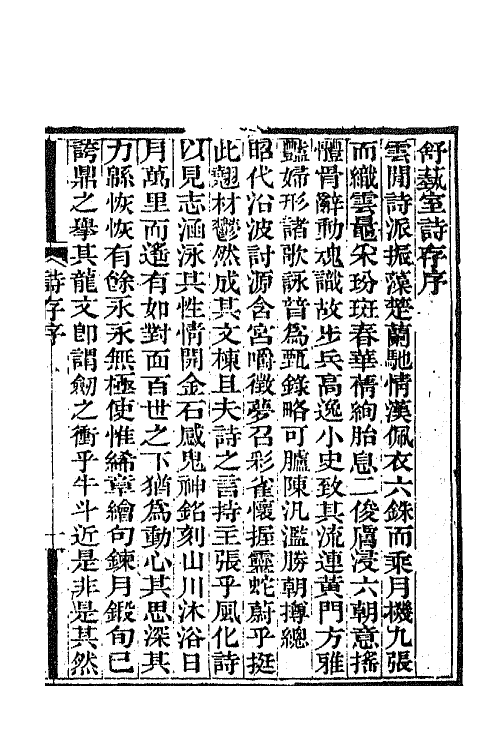 舒藝室詩存序
雲閒詩派振藻楚蘭馳情漢佩衣六銖而乘月機九張
而織雲鼂采玢斑春華蒨絢胎息二俊膚浸六朝意搖
體骨辭動魂識故步兵高逸小史致其流連黃門方雅
豔婦形諸歌詠昔為甄錄略可臚陳汎濫勝朝摶總
昭代沿波討源含宮嚼徵夢召彩雀懷握靈蛇蔚乎挺
此翹材鬱然成其文棟且夫詩之言持主張乎風化詩
以見志涵泳其性情開金石感鬼神銘刻山川沐浴日
月萬里而遙有如對面百世之下猶為動心其思深其
力緜恢恢有餘永永無極使惟絺章繪句鍊月鍛旬已
誇鼎之舉其龍文卽謂劒之衝乎牛斗近是非是其然
詩存序
一